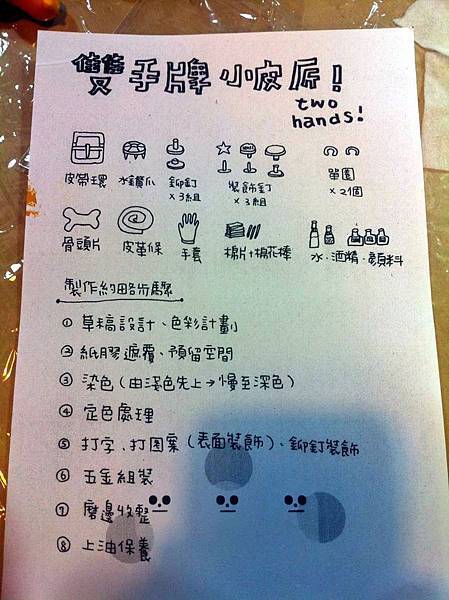 雙手牌小皮厂!
two
hands!
皮帶環 水鑽爪 鉚釘 裝飾釘 單圈
×3組 ×3組 ×2個
骨頭片 皮革條 手套 棉片+棉花棒 水.酒精.顏料
製作約略步驟
① 草稿設計、色彩計劃
② 紙膠遮覆、預留空間
③ 染色(由淺色先上→慢至深色)
④ 定色處理
⑤ 打字、打圖案(表面裝飾)、鉚釘裝飾
⑥ 五金組裝
⑦ 磨邊收整
⑧ 上油保養